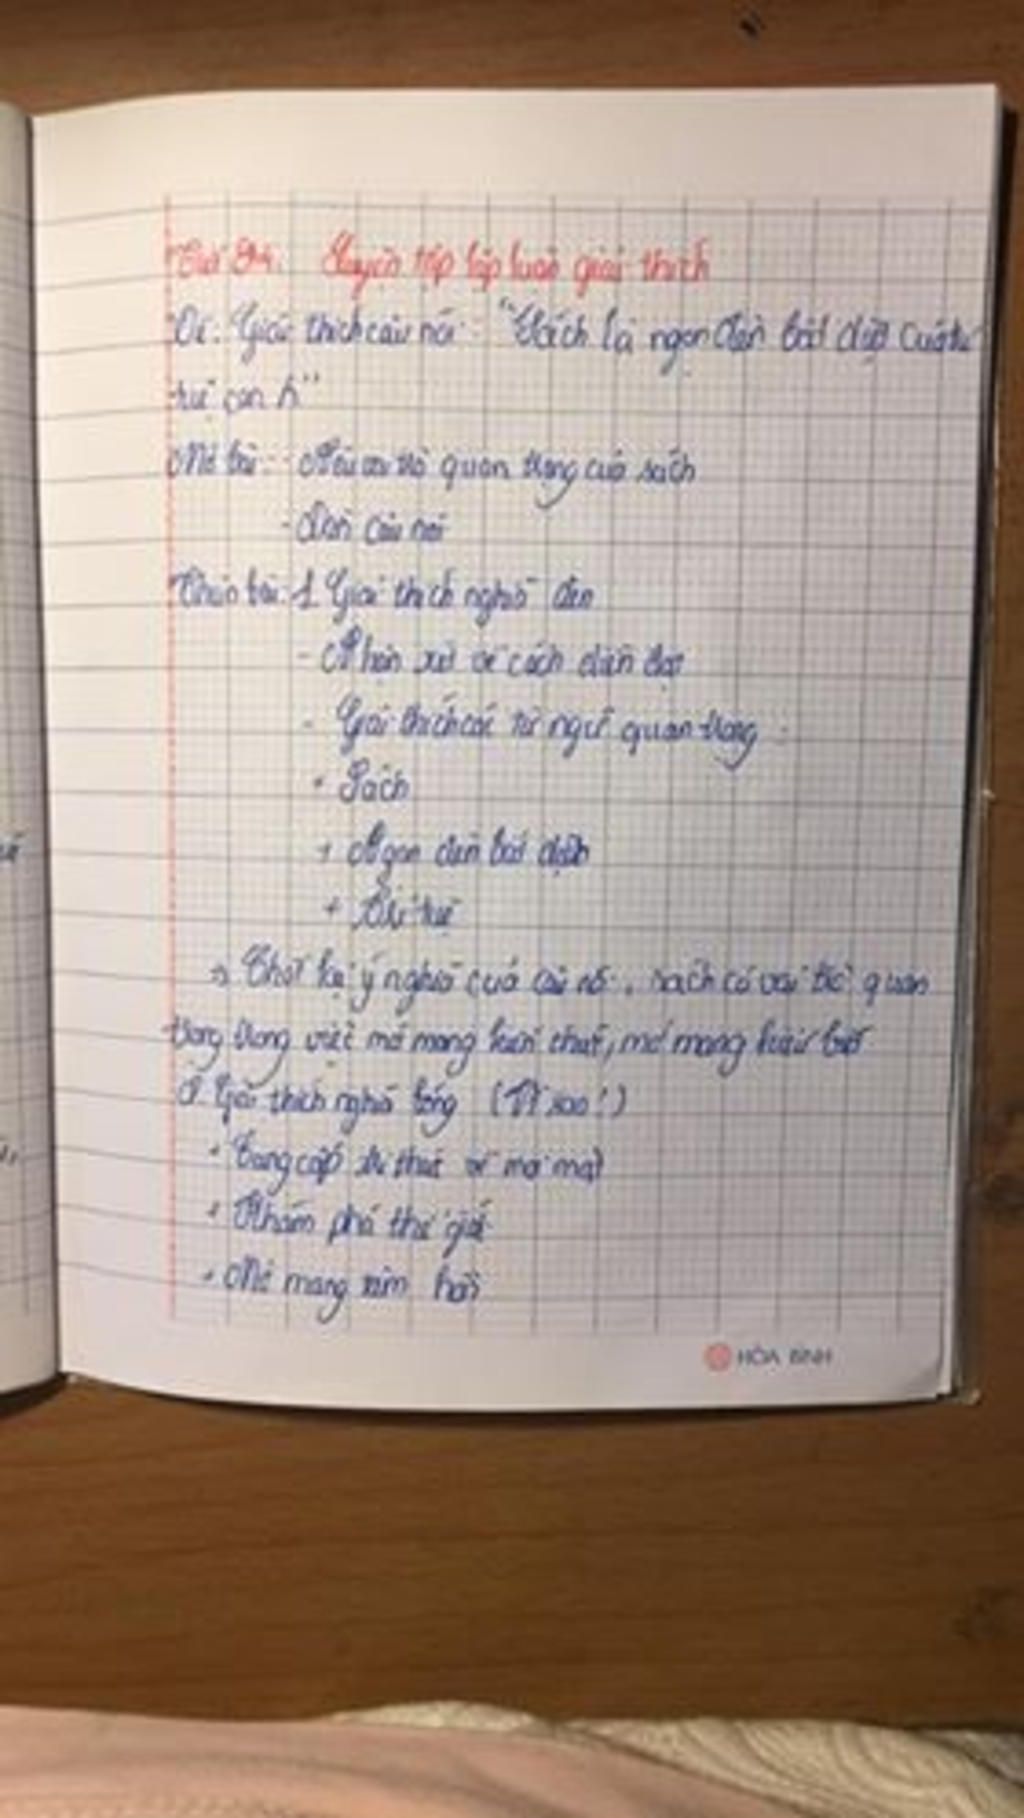 Luyện tập lập luận giải thích
Đề: Giải thích câu nói: "Sách là ngọn đèn bất diệt của
tuệ con
Mở bài: - Nêu vai trò quan trọng của sách
- Dẫn câu nói
Thân bài: 1. Giải thích nghĩa đen
- Nhận xét về cách diễn đạt
- Giải thích các từ ngữ quan trọng:
+ Sách
+ Ngọn đèn bất diệt
+ Trí tuệ
=> Chốt lại ý nghĩa của câu nói, sách có vai trò quan
trọng trong việc mở mang kiến thức, mở mang hiểu biết
2. Giải thích nghĩa bóng (Vì sao?)
+ Cung cấp tri thức về mọi mặt
+ Khám phá thế giới
+ Mở mang tâm hồn
HÒA BÌNH